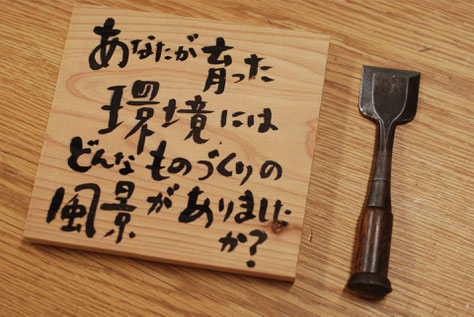 あなたが育った
環境には
どんなものづくりの
風景がありました
か?